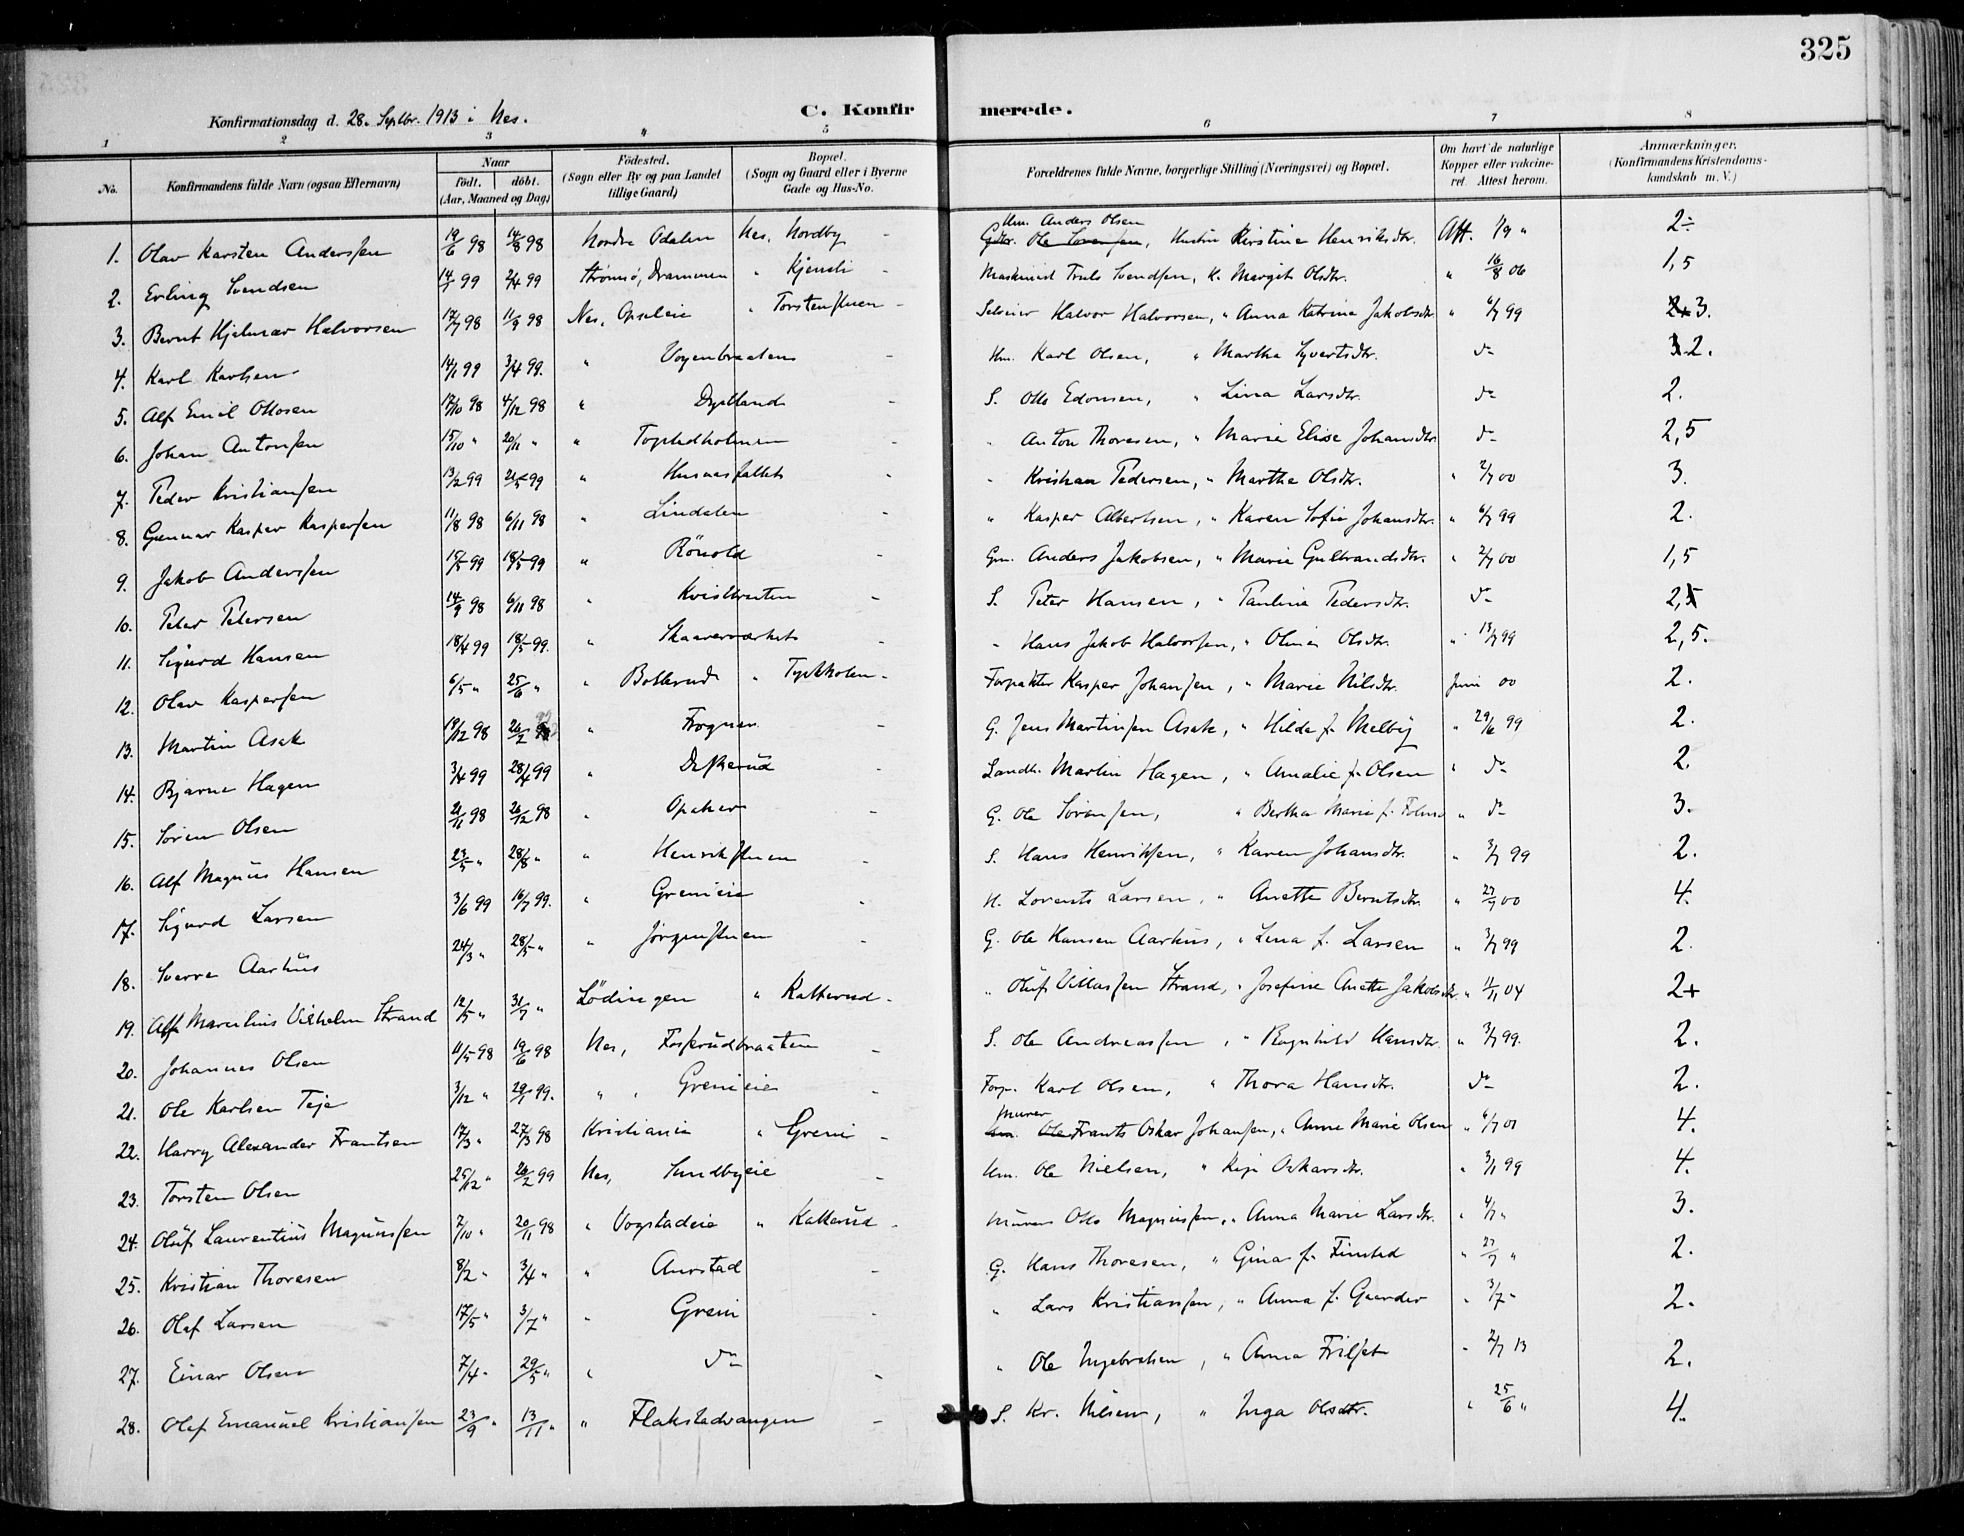 325
Konfirmationsdag d. 28. Septbr. 1913 i Nes. C. Konfirmerede.
1 2 3 4 5 6 7 8
No. Konfirmandens fulde Navn (ogsaa Efternavn) Naar født. døbt. (Aar, Maaned og Dag) Fødested. (Sogn eller By og paa Landet tillige Gaard) Bopæl. (Sogn og Gaard eller i Byerne Gade og Hus-No. Forældrenes fulde Navne, borgerlige Stilling (Næringsvei) og Bopæl. Om havt de naturlige Kopper eller vakcineret. Attest herom. Anmærkninger. (Konfirmandens Kristendomskundskab m. V.)
1. Olav Karsten Anderssen 19/6 98 14/8 98 Nordre Odalen Nes, Nordby - Hm. Anders Olsen Gdbr. Ole Sørensen, Hustru Kirstine Henriksdtr. Att. 1/9 " 2÷
2. Erling Svendsen 14/1 99 2/4 99 Strømsø, Drammen " Kjensli - Maskinist Truls Svendsen, H. Margit Olsdtr. " 16/8 06 1,5
3. Bernt Hjelmar Halvorsen 17/7 98 11/9 98 Nes, Opakeie " Torstenstuen - Selveier Halvor Halvorsen, " Anna Katrine Jakobsdtr. " 6/7 99 2+ 3.
4. Karl Karlsen 14/1 99 3/4 99. " Vogenbraaten - Hm. Karl Olsen, " Martha Syvertsdtr. do 3 2.
5. Alf Emil Ottosen 17/10 98 4/12 98 " Dystland - S. Otto Edonsen, " Lina Larsdtr. do 2.
6. Johan Antonsen 15/10 " 20/11 " " Togstadholmen - " Anton Thoresen, " Marie Elise Johansdtr. do 2,5
7. Peder Kristiansen 13/2 99 21/5 99 " Husaasfaltet - " Kristian Pedersen, " Marthe Olsdtr. " 2/7 00 3.
8. Gunnar Kasper Kaspersen 11/8 98 6/11 98 " Lindalen - " Kasper Albertsen, " Karen Sofie Johansdtr. " 6/7 99 2.
9. Jakob Anderssen 15/5 99 18/5 99 " Rönold - Gm. Anders Jakobsen, " Marie Gulbrandsdtr. " 2/7 00 1,5
10. Peter Petersen 14/9 98 6/11 98 " - S. Peter Hansen, " Pauline Pedersdtr. do 2,5
11. Sigurd Hansen 18/4 99 18/5 99. " Skaaververket - " Hans Jakob Halvorsen, " Oline Olsdtr. " 13/7 99 2,5.
12. Olav Kaspersen 6/5 " 25/6 " " Bollerud " Tyskholen - Forpakter Kasper Johansen, " Marie Nilsdtr. Juni 00 2.
13. Martin Asak 19/12 98 26/2 " Frogner - G. Jens Martinsen Asak, " Hilda f. Melby " 29/6 99 2.
14. Bjarne Hagen 3/4 99 28/4 99 " Disterud - Landh. Martin Hagen, " Amalie f. Olsen " do 2.
15. Søren Olsen 21/11 98 26/12 98 " Opaker - G. Ole Sørensen, " Bertha Marie f. " do 3.
16. Alf Magnus Hansen 23/5 " 28/8 " " Henrikstuen - S. Hans Henriksen, " Karen Johansdtr. " 3/7 99 2.
17. Sigurd Larsen 3/6 99 16/7 99. " Grenieie - H. Lorents Larsen, " Anette Berntsdtr. " 27/7 00 4.
18. Sverre Aarhus 24/3 " 28/5 " " Jørgenstuen - G. Ole Hansen Aarhus, " Lina f. Larsen " 3/7 99 2.
19. Alf Marelius Vilhelm Strand 12/5 " 31/7 " Lödingen " Katterud - " Oluf Villassen Strand, " Josefine Anette Jakobsdtr. " 1/11 04 2+
20. Johannes Olsen 11/5 98 19/6 98 Nes, Fosserudbraaten - S. Ole Andreassen, " Ragnhild Hansdtr. " 3/7 99. 2.
21. Ole Karlsen Teje 3/12 " 29/1 99. " " Grenieie - Forp. Karl Olsen, " Thora Hansdtr. do 2.
22. Harry Alexander Frantsen 17/3 " 27/3 98 Kristiania " Greni - Murer Hm. Ole Frants Oskar Johansen, " Anne Marie Olsen " 6/7 01 4.
23. Torsten Olsen 25/12 " 26/2 99 Nes, Sundbyeie - Hm. Ole Nielsen, " Oskarsdtr. " 3/1 99 4.
24. Oluf Laurentius Magnussen 7/10 " 20/11 98 " Vogstadeie " Katterud - Murer Otto Magnussen, " Anna Marie Larsdtr. " 4/7 " 3.
25. Kristian Thoresen 8/2 " 3/4 " " Aurstad - G. Hans Thoresen, " Gina f. Finstad " 27/7 " 2.
26. Olaf Larsen 17/5 " 3/7 " " Greni - " Lars Kristiansen, " Anna f. Gaarder " 3/7 " 2.
27. Einar Olsen 7/4 " 29/5 " " do - " Ole Ingebretsen, " Anna Frilset " 2/7 13 2.
28. Olaf Emanuel Kristiansen 23/9 " 13/11 " " Flakstadvangen - S. Kr. Nilsen, " Inga Olsdtr. " 25/6 " 4.